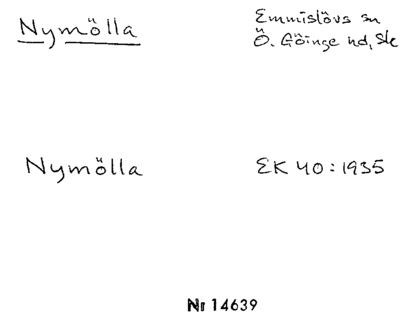 Nymölla
Emmislövs sn
Ö. Göinge hd, Sk
Nymölla
EK 40:1935
Nr 14639